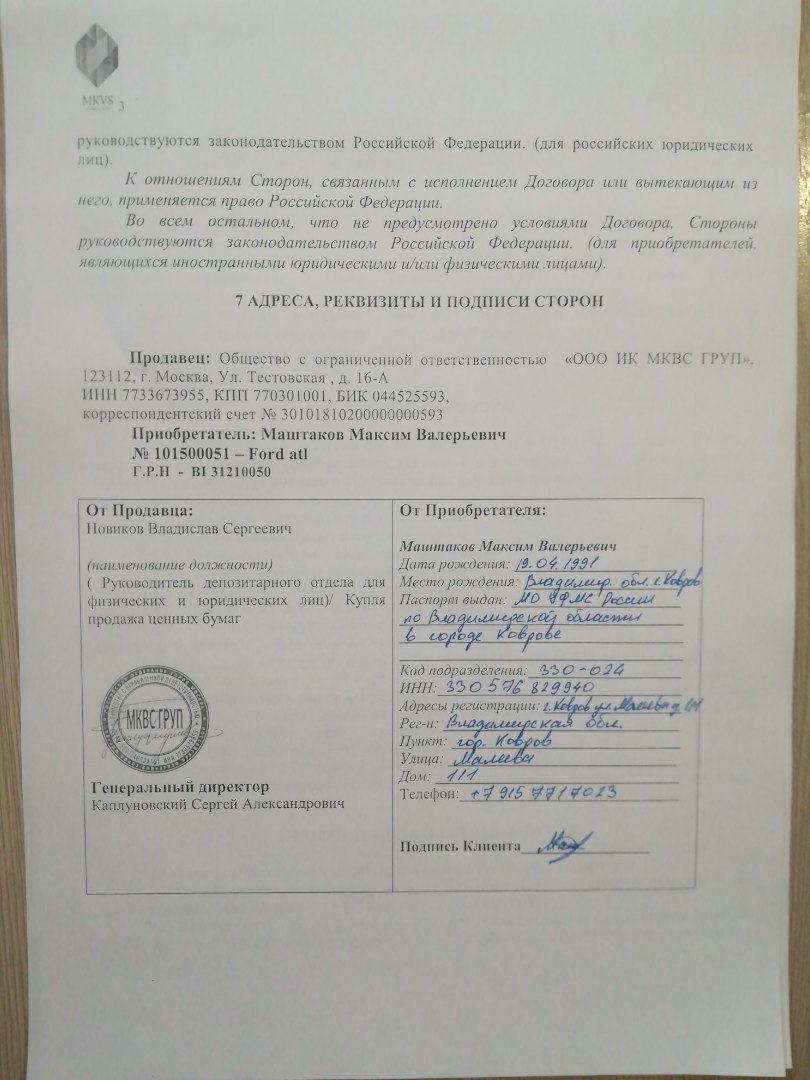 MKVS 3
руководствуются законодательством Российской Федерации. (для российских юридических
лиц).
К отношениям Сторон, связанным с исполнением Договора или вытекающим из
него, применяется право Российской Федерации.
Во всем остальном, что не предусмотрено условиями Договора, Стороны
руководствуются законодательством Российской Федерации. (для приобретателей,
являющихся иностранными юридическими и/или физическими лицами).
7 АДРЕСА, РЕКВИЗИТЫ И ПОДПИСИ СТОРОН
Продавец: Общество с ограниченной ответственностью «ООО ИК МКВС ГРУП»,
123112, г. Москва, Ул. Тестовская , д. 16-А
ИНН 7733673955, КПП 770301001, БИК 044525593,
корреспондентский счет № 30101810200000000593
Приобретатель: Маштаков Максим Валерьевич
№ 101500051 – Ford atl
Г.Р.Н - BI 31210050
От Продавца:
Новиков Владислав Сергеевич
(наименование должности)
( Руководитель депозитарного отдела для
физических и юридических лиц)/ Купля
продажа ценных бумаг
МКВС ГРУП
Генеральный директор
Каплуновский Сергей Александрович
От Приобретателя:
Маштаков Максим Валерьевич
Дата рождения: 19.04.1991
Место рождения: Владимир. обл. г. Ковров
Паспорт выдан: МО УФМС России
по Владимирской области
в городе Коврове
Код подразделения: 330-024
ИНН: 330 576 829940
Адресы регистрации: г. Ковров ул. Малеева д 1/1
Рег-н: Владимирская обл.
Пункт: гор. Ковров
Улица: Малеева
Дом: 1/1
Телефон: +7 915 7717023
Подпись Клиента